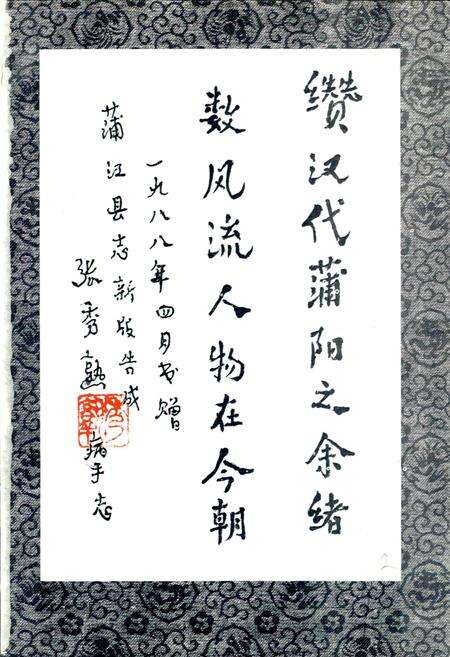 缵汉代蒲阳之余绪
数风流人物在今朝
一九八八年四月书赠
蒲江县志新版告成
张秀熟病手志
2